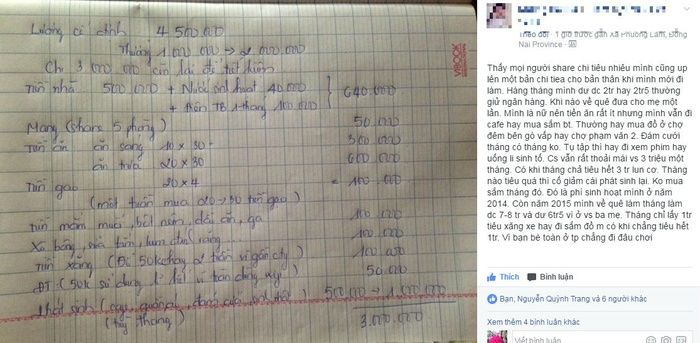 Lương cố định 4 500.000
Thưởng 1.000.000 → 2.000.000
Chi 3.000.000 còn lại để tiết kiệm
Tiền nhà 500.000 + Nước sinh hoạt 40.000
+ Điện TB 1 tháng 100.000
640.000
Mạng (share 5 phòng) 50.000
Tiền ăn ăn sáng 10 x 30 300.000
ăn trưa 20 x 30 600.000
Tiền gạo 20 x 4 = 100.000
(một tuần mua 20 → 30 tiền gạo)
Tiền mắm muối, bột nêm, dầu ăn, ga 100.000
Xà bông, sữa tắm, kem đánh răng... 100.000
Tiền xăng (Đổ 50k chạy 2 tuần vì gần cty) 100.000
ĐT (50k sử dụng 1 thể vì toàn dùng mạng) 50.000
Phát sinh (cafe, quần áo, đám cưới, sinh nhật) 500.000 → 1.000.000
(tùy tháng)
3.000.000
VIBOOK
Theo dõi · 1 giờ trước gần Xã Phường Lâm, Đồng
Nai Province ·
Thấy mọi người share chi tiêu nhiều mình cũng up
lên một bản chi tiea cho bản thân khi mình mới đi
làm. Hàng tháng mình dư dc 2tr hay 2tr5 thường
giử ngân hàng. Khi nào về quê đưa cho mẹ một
lần. Mình là nữ nên tiền ăn rất ít nhưng mình vẫn đi
cafe hay mua sắm bt. Thường hay mua đồ ở chợ
đêm bên gò vấp hay chợ phạm văn 2. Đám cưới
tháng có tháng ko. Tụ tập thì hay đi xem phim hay
uống li sinh tố. Cs vẫn rất thoải mái vs 3 triệu một
tháng. Có khi tháng chả tiêu hết 3 tr lun cơ. Tháng
nào tiêu quá thì cố giảm cái phát sinh lại. Ko mua
sắm tháng đó. Đó là phí sinh hoạt mình ở năm
2014. Còn năm 2015 mình về quê làm tháng làm
dc 7-8 tr và dư 6tr5 vì ở vs ba mẹ. Tháng chỉ lấy 1tr
tiêu xăng xe hay đi sắm đồ m có khi chẳng tiêu hết
1tr. Vì bạn bè toàn ở tp chẳng đi đâu chơi
Thích Bình luận
Bạn, Nguyễn Quỳnh Trang và 6 người khác
Xem thêm 4 bình luận khác
Viết bình luận